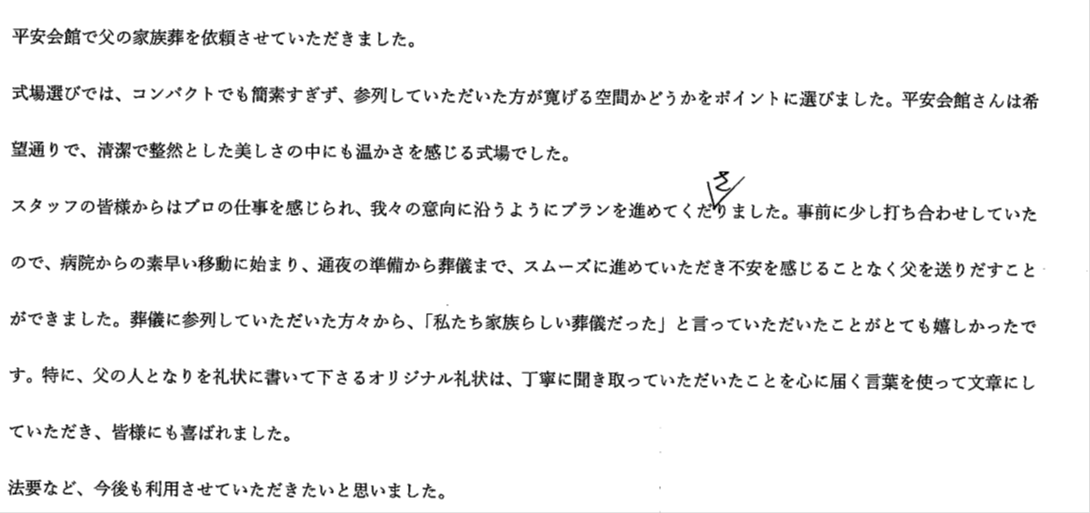 平安会館で父の家族葬を依頼させていただきました。
式場選びでは、コンパクトでも簡素すぎず、参列していただいた方が寛げる空間かどうかをポイントに選びました。平安会館さんは希
望通りで、清潔で整然とした美しさの中にも温かさを感じる式場でした。
スタッフの皆様からはプロの仕事を感じられ、我々の意向に沿うようにプランを進めてくださりました。事前に少し打ち合わせしていた
ので、病院からの素早い移動に始まり、通夜の準備から葬儀まで、スムーズに進めていただき不安を感じることなく父を送りだすこと
ができました。葬儀に参列していただいた方々から、「私たち家族らしい葬儀だった」と言っていただいたことがとても嬉しかったで
す。特に、父の人となりを礼状に書いて下さるオリジナル礼状は、丁寧に聞き取っていただいたことを心に届く言葉を使って文章にし
ていただき、皆様にも喜ばれました。
法要など、今後も利用させていただきたいと思いました。